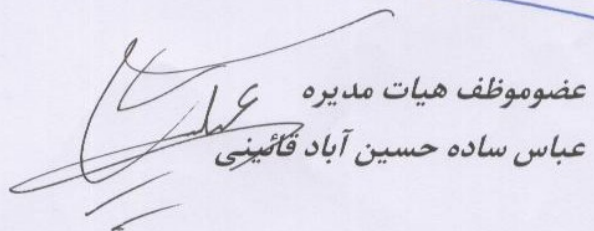 عضوموظف هیات مدیره
عباس ساده حسین آباد قائینی